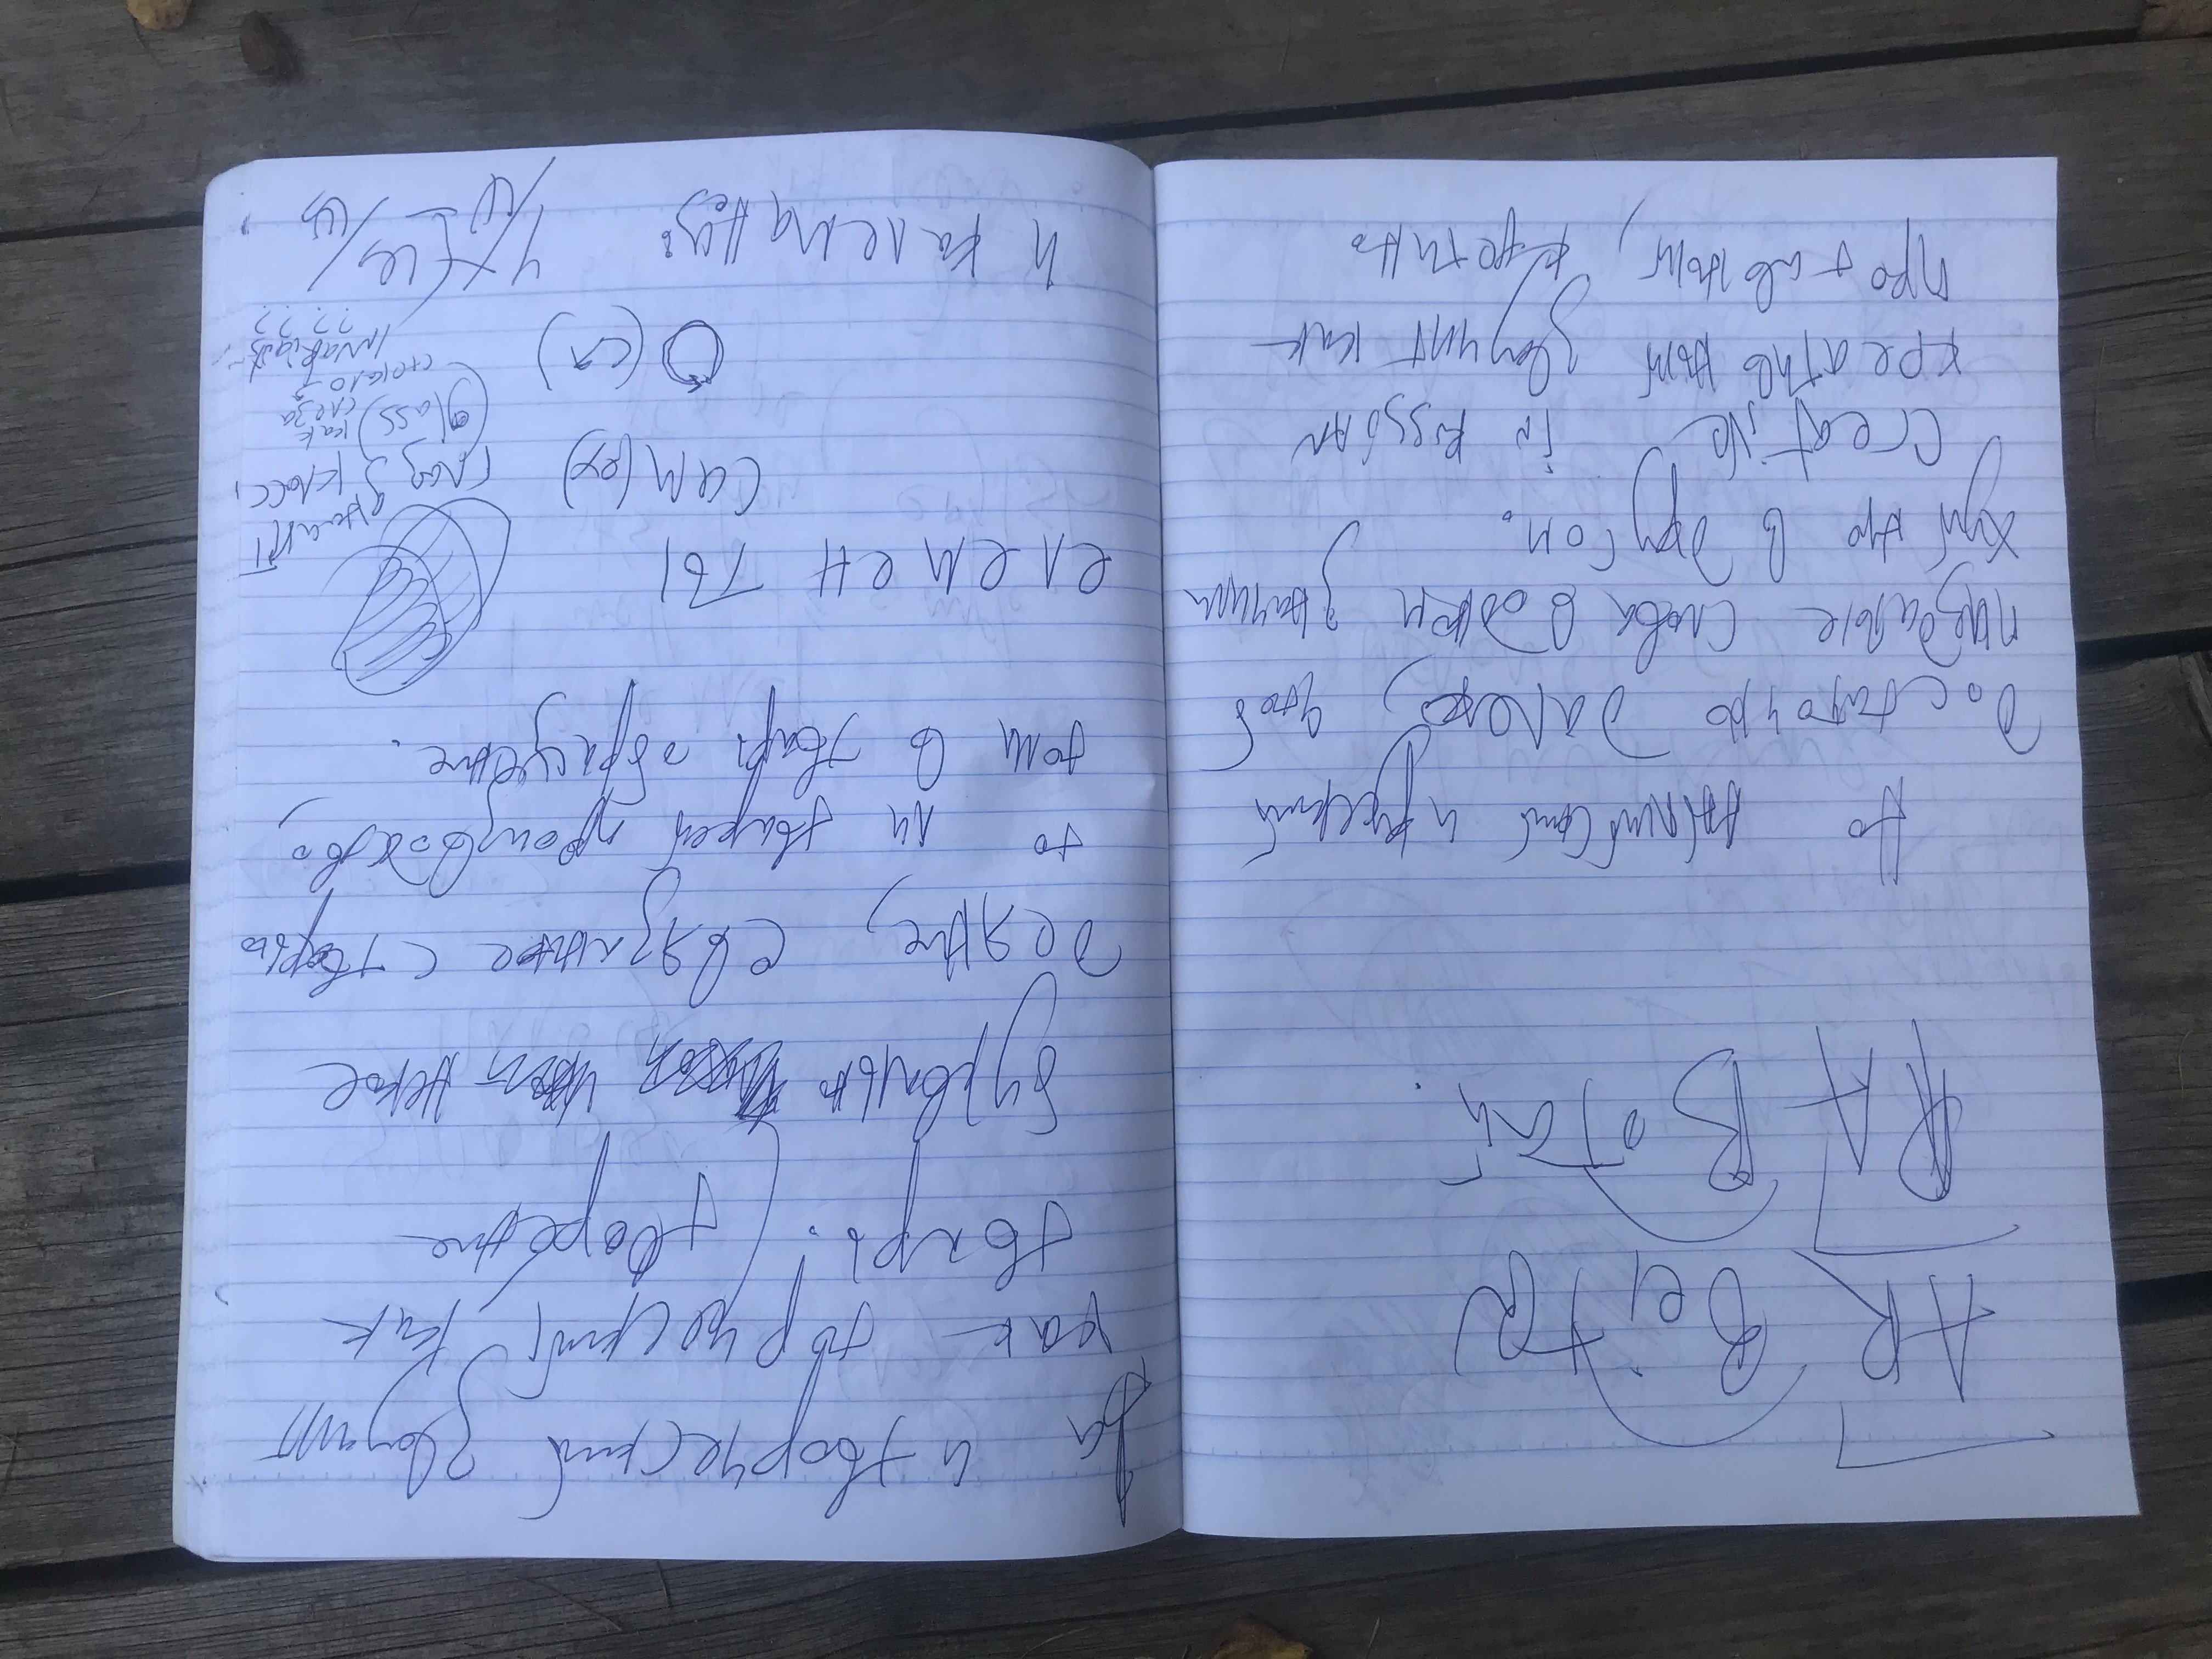 AR Beita
RA Вотай.
Но английский и русский
достаточно далеко, чтоб
пиздатые слова в одном значили
хуйню в другом.
Creative in Russian
креативный звучит как
противный, кретино
Да и творческий звучит
как творческий как
тварь. творение
буквально некое
деяние, связаное с тварью
то ли тварей производство,
то ли в тварь обращение.
елемен ты
Сам (ех)
глаз значит
класс,
(glass) как
слеза
стекло →
invariants
? ? ? ?
О (ся)
и калеманець